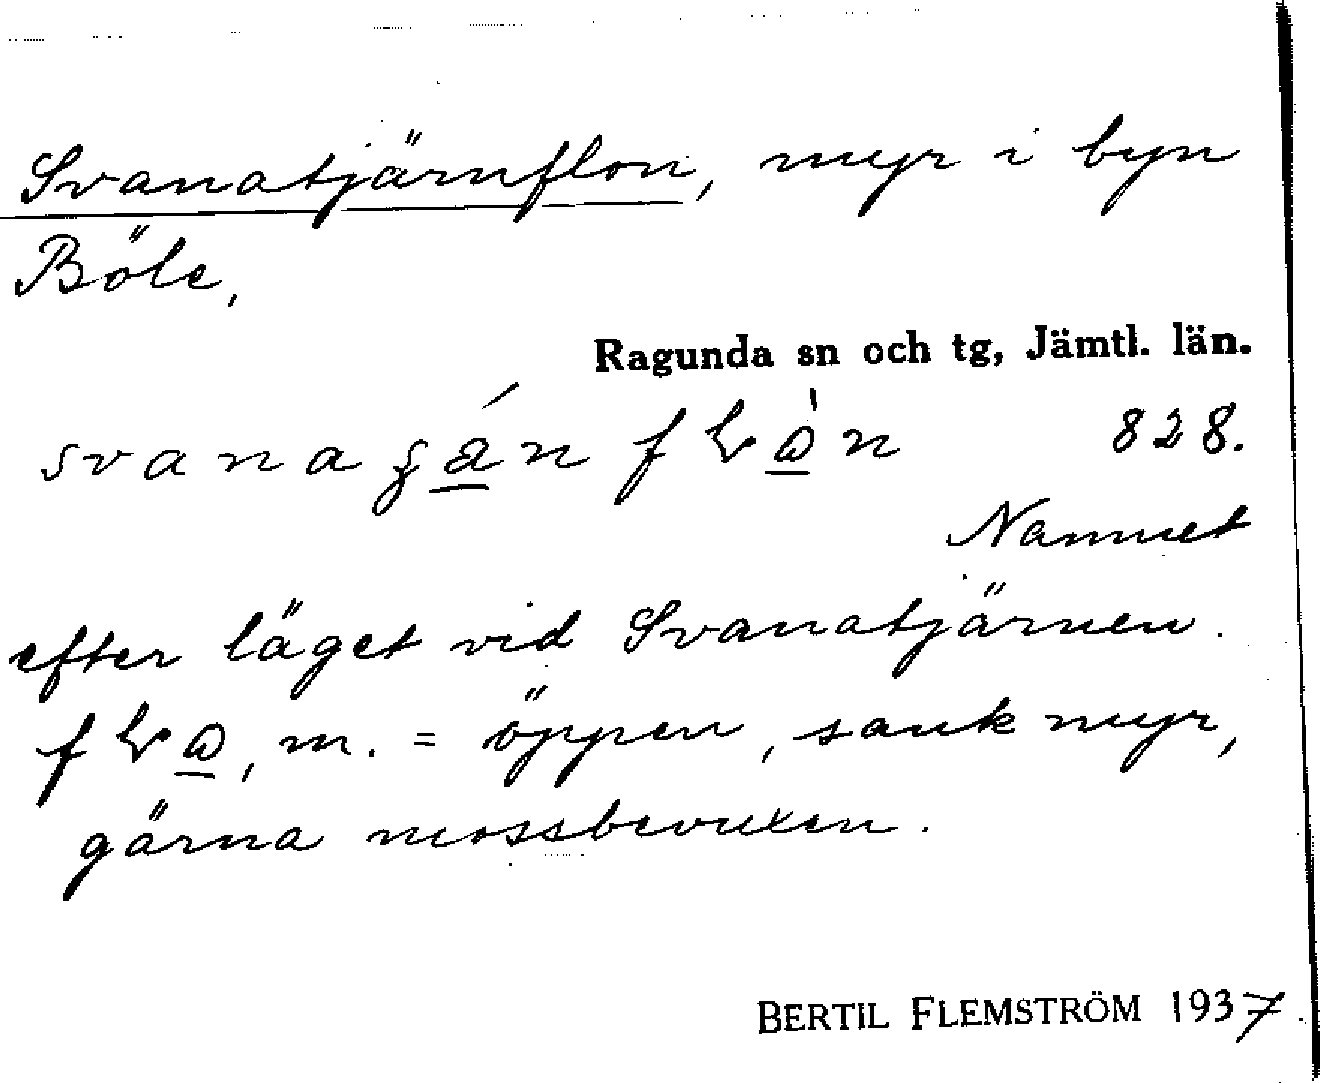 Svanatjärnflon, myr i byn
Böle,
Ragunda sn och tg, Jämtl. län.
828.
Namnet
efter läget vid Svanatjärnen.
m. = öppen, sank myr,
gärna mossbevuxen.
BERTIL FLEMSTRÖM 1937